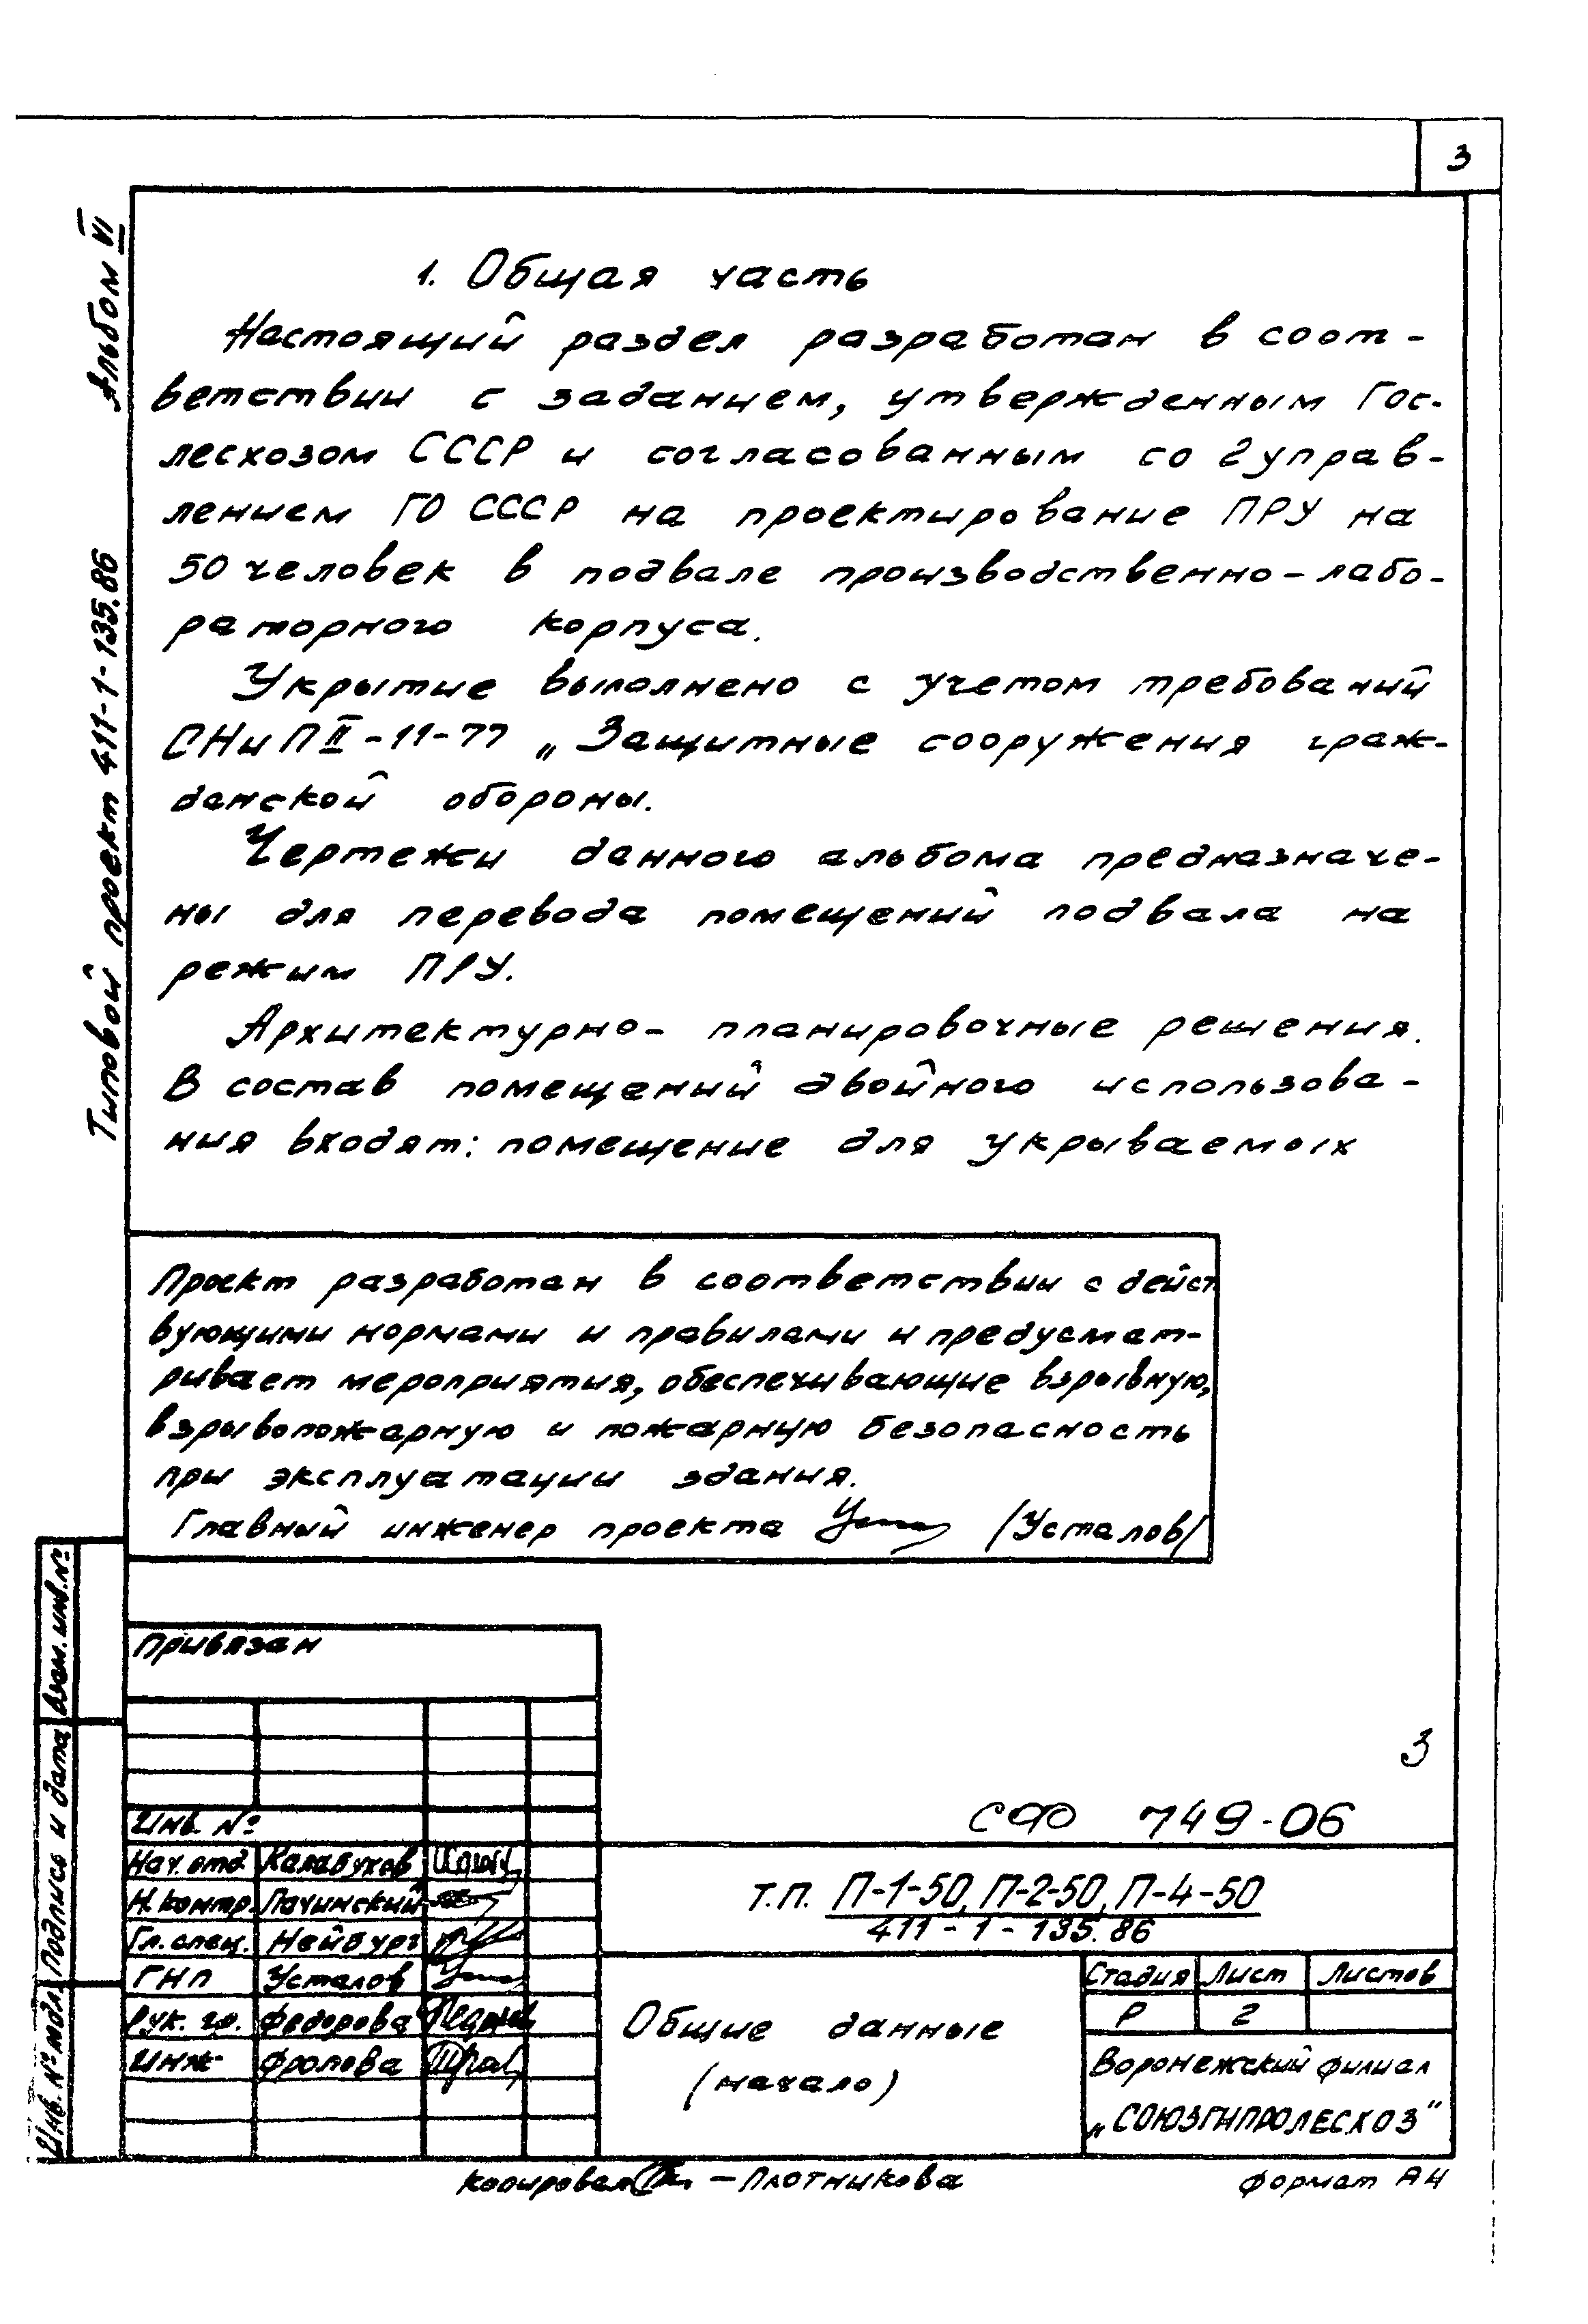 3
Альбом VI
Типовой проект 411-1-135.86
1. Общая часть
Настоящий раздел разработан в соот-
ветствии с заданием, утвержденным Гос-
лесхозом СССР и согласованным со 2 управ-
лением ГО СССР на проектирование ПРУ на
50 человек в подвале производственно-лабо-
раторного корпуса.
Укрытие выполнено с учетом требований
СНиП II-11-77 „Защитные сооружения граж-
данской обороны.
Чертежи данного альбома предназначе-
ны для перевода помещений подвала на
режим ПРУ.
Архитектурно- планировочные решения.
В состав помещений двойного использова-
ния входят: помещение для укрываемых
Проект разработан в соответствии с дейст
вующими нормами и правилами и предусмат-
ривает мероприятия, обеспечивающие взрывную,
взрывопожарную и пожарную безопасность
при эксплуатации здания.
Главный инженер проекта /Усталов/
Привязан
Инв. №
Взам. инв. №
Подпись и дата
Инв. № подл.
3
СФ 749-06
Нач. отд Калабухов
Н. контр. Пачинский
Гл. спец. Нейбург
ГИП Усталов
Рук. гр. Федорова
Инж Фролова
Т.П. П-1-50, П-2-50, П-4-50
411-1-135.86
Общие данные
(начало)
Стадия Лист Листов
Р 2
Воронежский филиал
„СОЮЗГИПРОЛЕСХОЗ"
Копировал - Плотникова
Формат А4